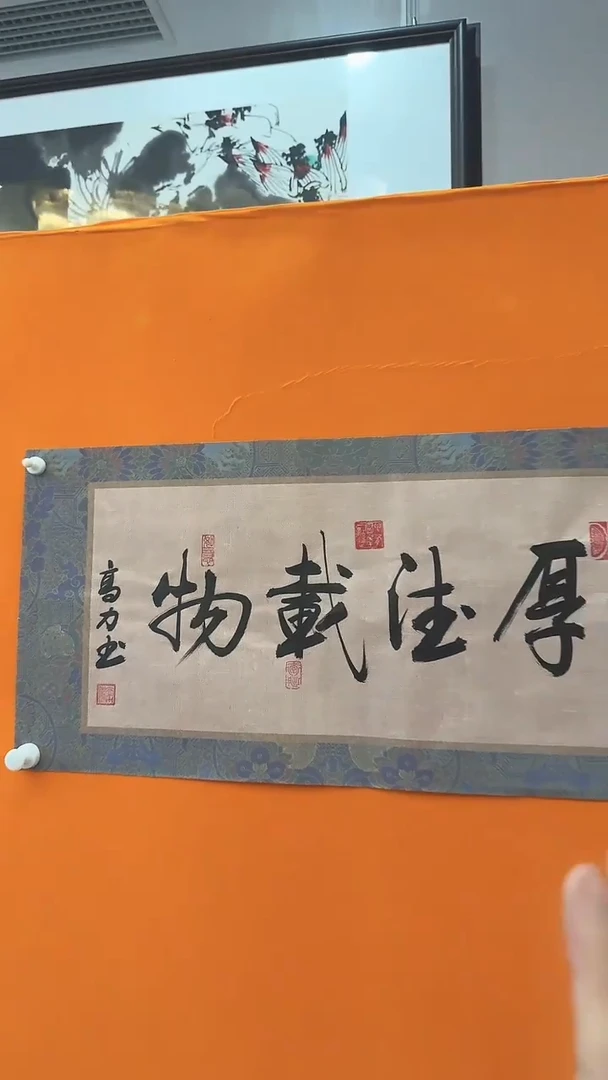 厚德載物
高力书